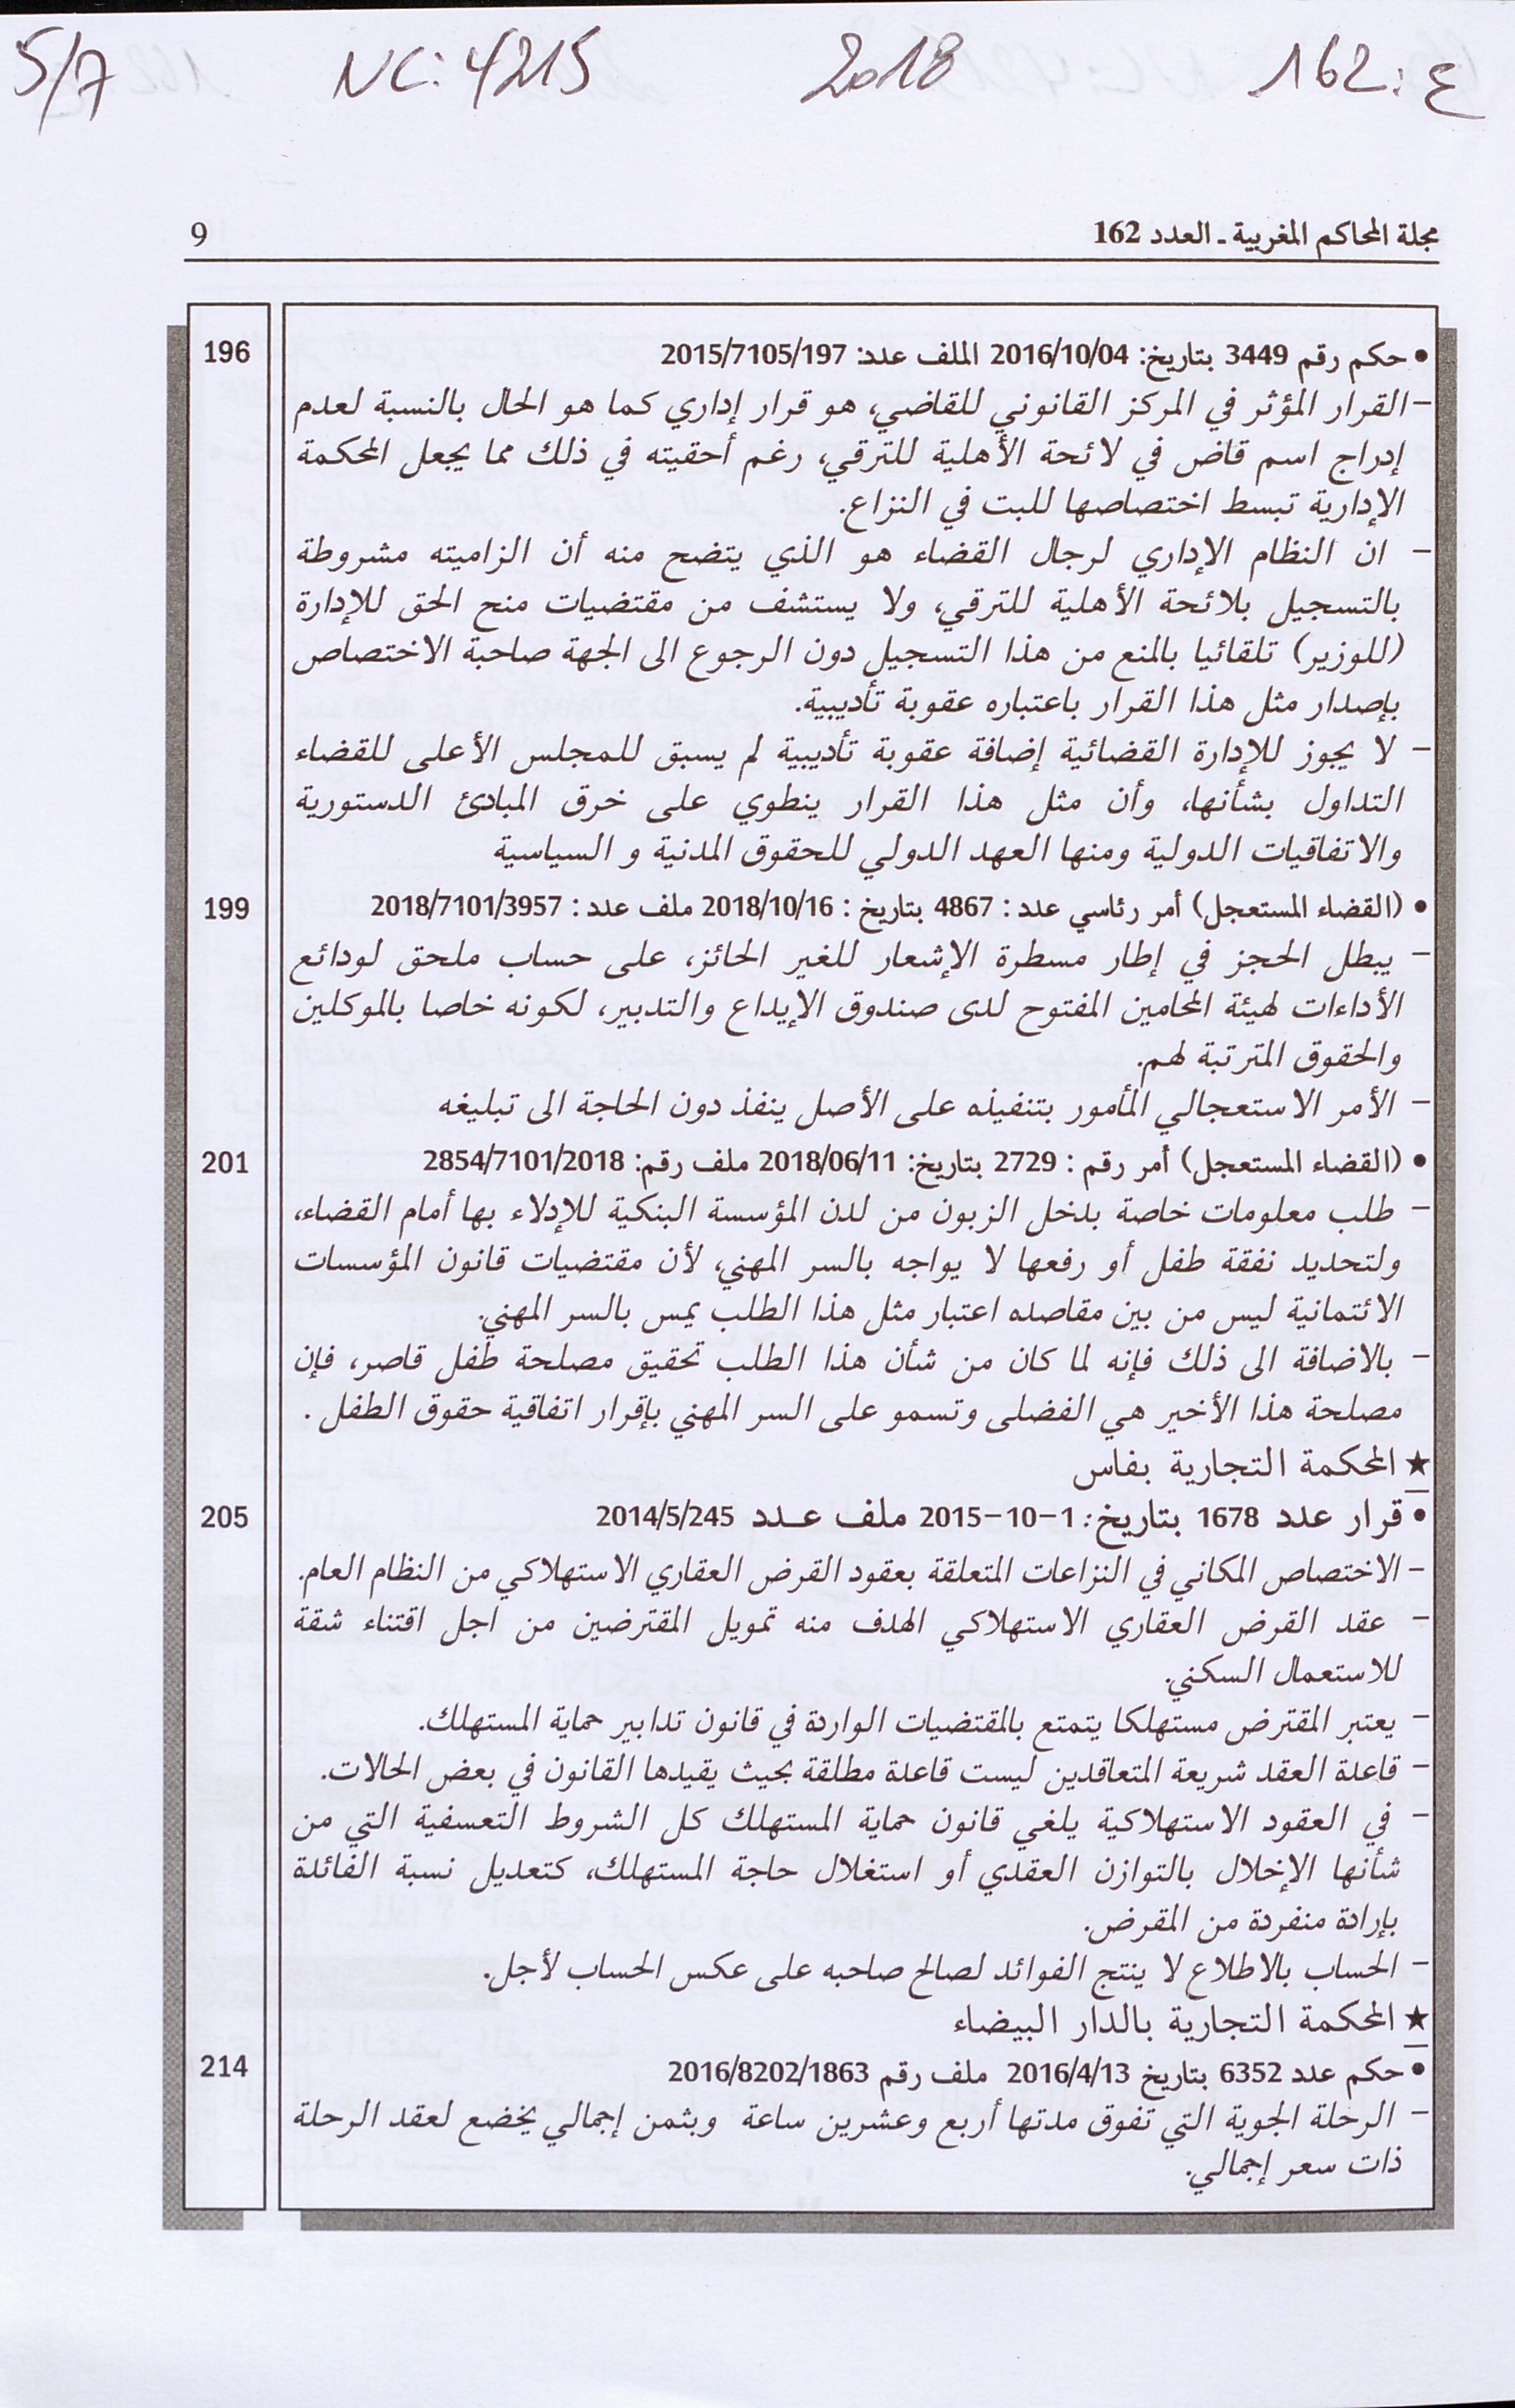 ع: 162 2018 NC: 4215 5/7
مجلة المحاكم المغربية ـ العدد 162 9
• حكم رقم 3449 بتاريخ: 2016/10/04 الملف عدد: 2015/7105/197 196
– القرار المؤثر في المركز القانوني للقاضي، هو قرار إداري كما هو الحال بالنسبة لعدم
إدراج اسم قاض في لائحة الأهلية للترقي، رغم أحقيته في ذلك مما يجعل المحكمة
الإدارية تبسط اختصاصها للبت في النزاع.
– ان النظام الإداري لرجال القضاء هو الذي يتضح منه أن الزاميته مشروطة
بالتسجيل بلائحة الأهلية للترقي، ولا يستشف من مقتضيات منح الحق للإدارة
(للوزير) تلقائيا بالمنع من هذا التسجيل دون الرجوع الى الجهة صاحبة الاختصاص
بإصدار مثل هذا القرار باعتباره عقوبة تأديبية.
– لا يجوز للإدارة القضائية إضافة عقوبة تأديبية لم يسبق للمجلس الأعلى للقضاء
التداول بشأنها، وأن مثل هذا القرار ينطوي على خرق المبادئ الدستورية
والاتفاقيات الدولية ومنها العهد الدولي للحقوق المدنية و السياسية
• (القضاء المستعجل) أمر رئاسي عدد : 4867 بتاريخ : 2018/10/16 ملف عدد : 2018/7101/3957 199
– يبطل الحجز في إطار مسطرة الإشعار للغير الحائز، على حساب ملحق لودائع
الأداءات لهيئة المحامين المفتوح لدى صندوق الإيداع والتدبير، لكونه خاصا بالموكلين
والحقوق المترتبة لهم.
– الأمر الاستعجالي المأمور بتنفيذه على الأصل ينفذ دون الحاجة الى تبليغه
• (القضاء المستعجل) أمر رقم : 2729 بتاريخ: 2018/06/11 ملف رقم: 2854/7101/2018 201
– طلب معلومات خاصة بدخل الزبون من لدن المؤسسة البنكية للإدلاء بها أمام القضاء،
ولتحديد نفقة طفل أو رفعها لا يواجه بالسر المهني، لأن مقتضيات قانون المؤسسات
الائتمانية ليس من بين مقاصده اعتبار مثل هذا الطلب يمس بالسر المهني.
– بالاضافة الى ذلك فإنه لما كان من شأن هذا الطلب تحقيق مصلحة طفل قاصر، فإن
مصلحة هذا الأخير هي الفضلى وتسمو على السر المهني بإقرار اتفاقية حقوق الطفل .
★ المحكمة التجارية بفاس
• قرار عدد 1678 بتاريخ: 1–10–2015 ملف عـدد 2014/5/245 205
– الاختصاص المكاني في النزاعات المتعلقة بعقود القرض العقاري الاستهلاكي من النظام العام.
– عقد القرض العقاري الاستهلاكي الهدف منه تمويل المقترضين من اجل اقتناء شقة
للاستعمال السكني.
– يعتبر المقترض مستهلكا يتمتع بالمقتضيات الواردة في قانون تدابير حماية المستهلك.
– قاعدة العقد شريعة المتعاقدين ليست قاعدة مطلقة بحيث يقيدها القانون في بعض الحالات.
– في العقود الاستهلاكية يلغي قانون حماية المستهلك كل الشروط التعسفية التي من
شأنها الإخلال بالتوازن العقدي أو استغلال حاجة المستهلك، كتعديل نسبة الفائدة
بإرادة منفردة من المقرض.
– الحساب بالاطلاع لا ينتج الفوائد لصالح صاحبه على عكس الحساب لأجل.
★ المحكمة التجارية بالدار البيضاء
• حكم عدد 6352 بتاريخ 2016/4/13 ملف رقم 2016/8202/1863 214
– الرحلة الجوية التي تفوق مدتها أربع وعشرين ساعة وبثمن إجمالي يخضع لعقد الرحلة
ذات سعر إجمالي.